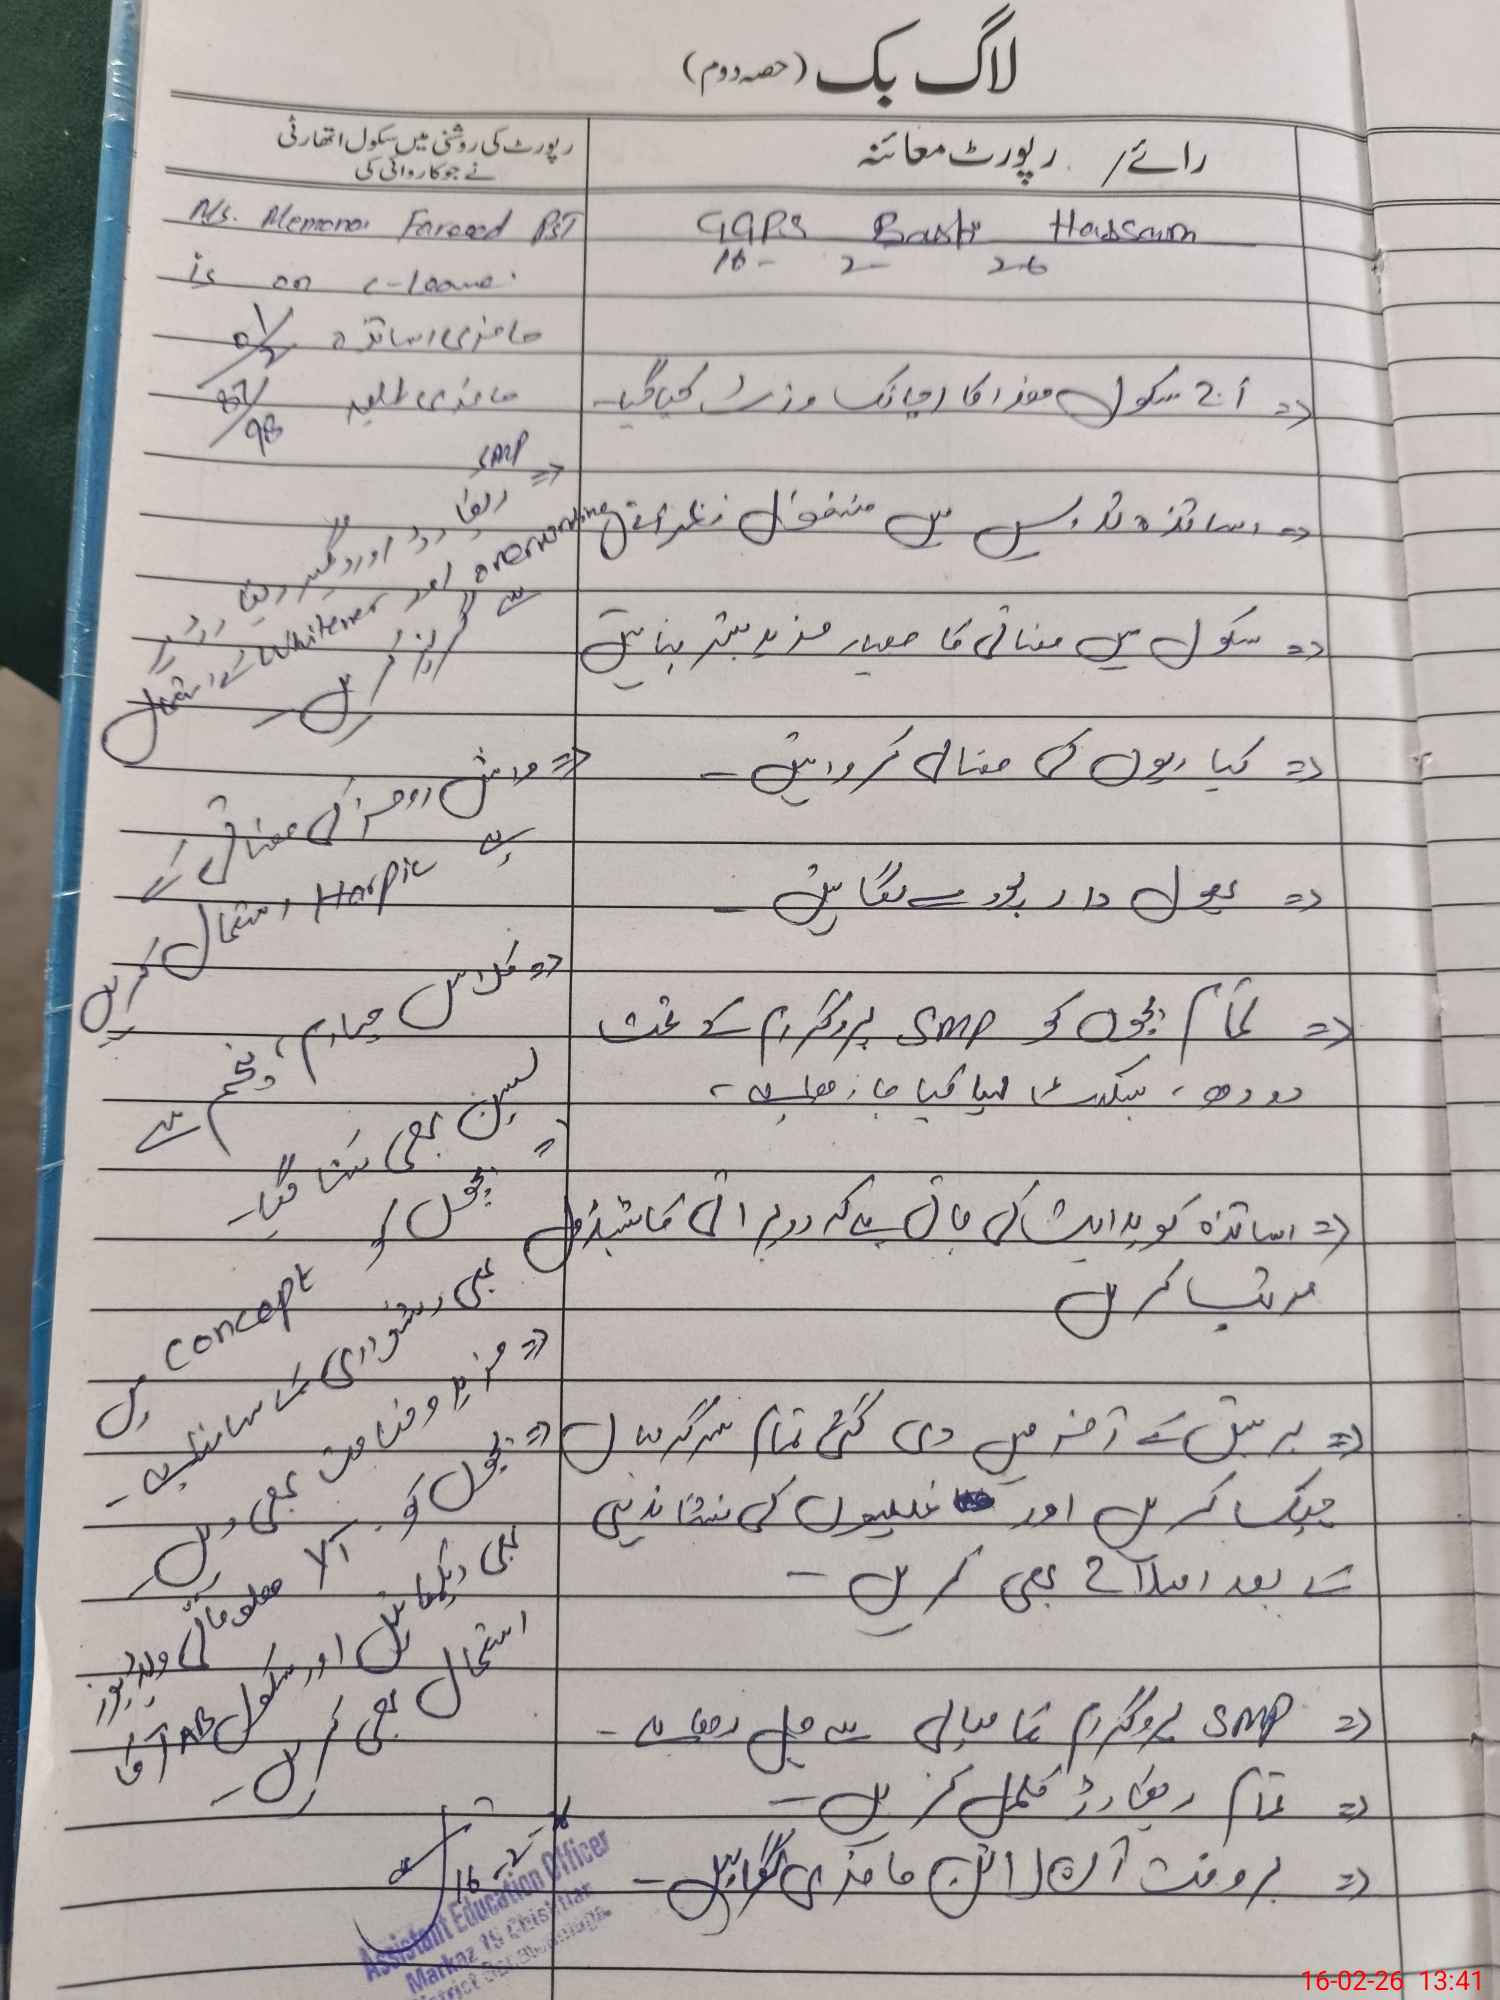 لاگ بک (حصہ دوم)
رائے / رپورٹ معائنہ
رپورٹ کی روشنی میں سکول اتھارٹی
نے جو کاروائی کی
GGPS Basti Hassam
16- 2- 26
=> آج سکول ھذا کا اچانک وزٹ کیا گیا۔
=> اساتذہ تدریس میں مشغول نظر آئی
=> سکول میں صفائی کا معیار مزید بہتر بنائیں
=> کیاریوں کی صفائی کروائیں۔
=> پھول دار پودے لگائیں۔
=> تمام بچوں کو SMP پروگرام کے تحت
دودھ، بسکٹ مہیا کیا جا رہا ہے،
=> اساتذہ کو ہدایت کی جاتی ہے کہ دوہرائی کا شیڈول
مرتب کریں
=> ہر سبق کے آخر میں دی گئی تمام سرگرمیاں
چیک کریں اور غلطیوں کی نشاندہی
کے بعد اصلاح بھی کریں۔
=> SMP پروگرام کامیابی سے چل رہا ہے۔
=> تمام ریکارڈ مکمل کریں۔
=> بروقت آن لائن حاضری لگوائیں۔
Ms. Memona Fareed PST
is on c-leave.
حاضری اساتذہ 01/2
حاضری طلبہ 87/98
=> SMP
ریکارڈ اور دیگر ریکارڈ پر
Whitener اور overwriting کے استعمال
سے گریز کریں۔
=> واش رومز کی صفائی کے
لیے Harpic استعمال کریں
=> کلاس چہارم، پنجم سے
لیسن بھی سنا گیا۔
=> بچوں کو concept میں
بھی دشواری کا سامنا ہے۔
=> مزید وضاحت بھی دیں۔
=> بچوں کو معلوماتی ویڈیوز
بھی دیکھائیں اور سکول AB کا
استعمال بھی کریں۔
16-2-26
Assistant Education Officer
Markaz 15 Chishtian
District Bahawalnagar
16-02-26 13:41